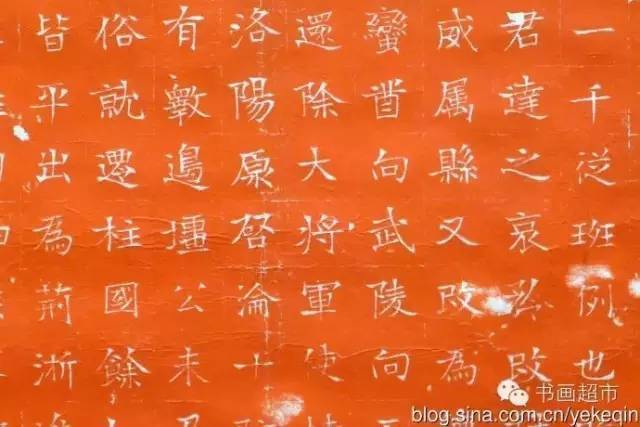 一千班例也
君達之哀改
威属縣又改為
蠻酋向武陵向
還除大將軍使
洛陽原召淪十
有邊壃公未
俗就還柱國餘
皆平出為荊淅
书画超市
blog.sina.com.cn/yekeqin